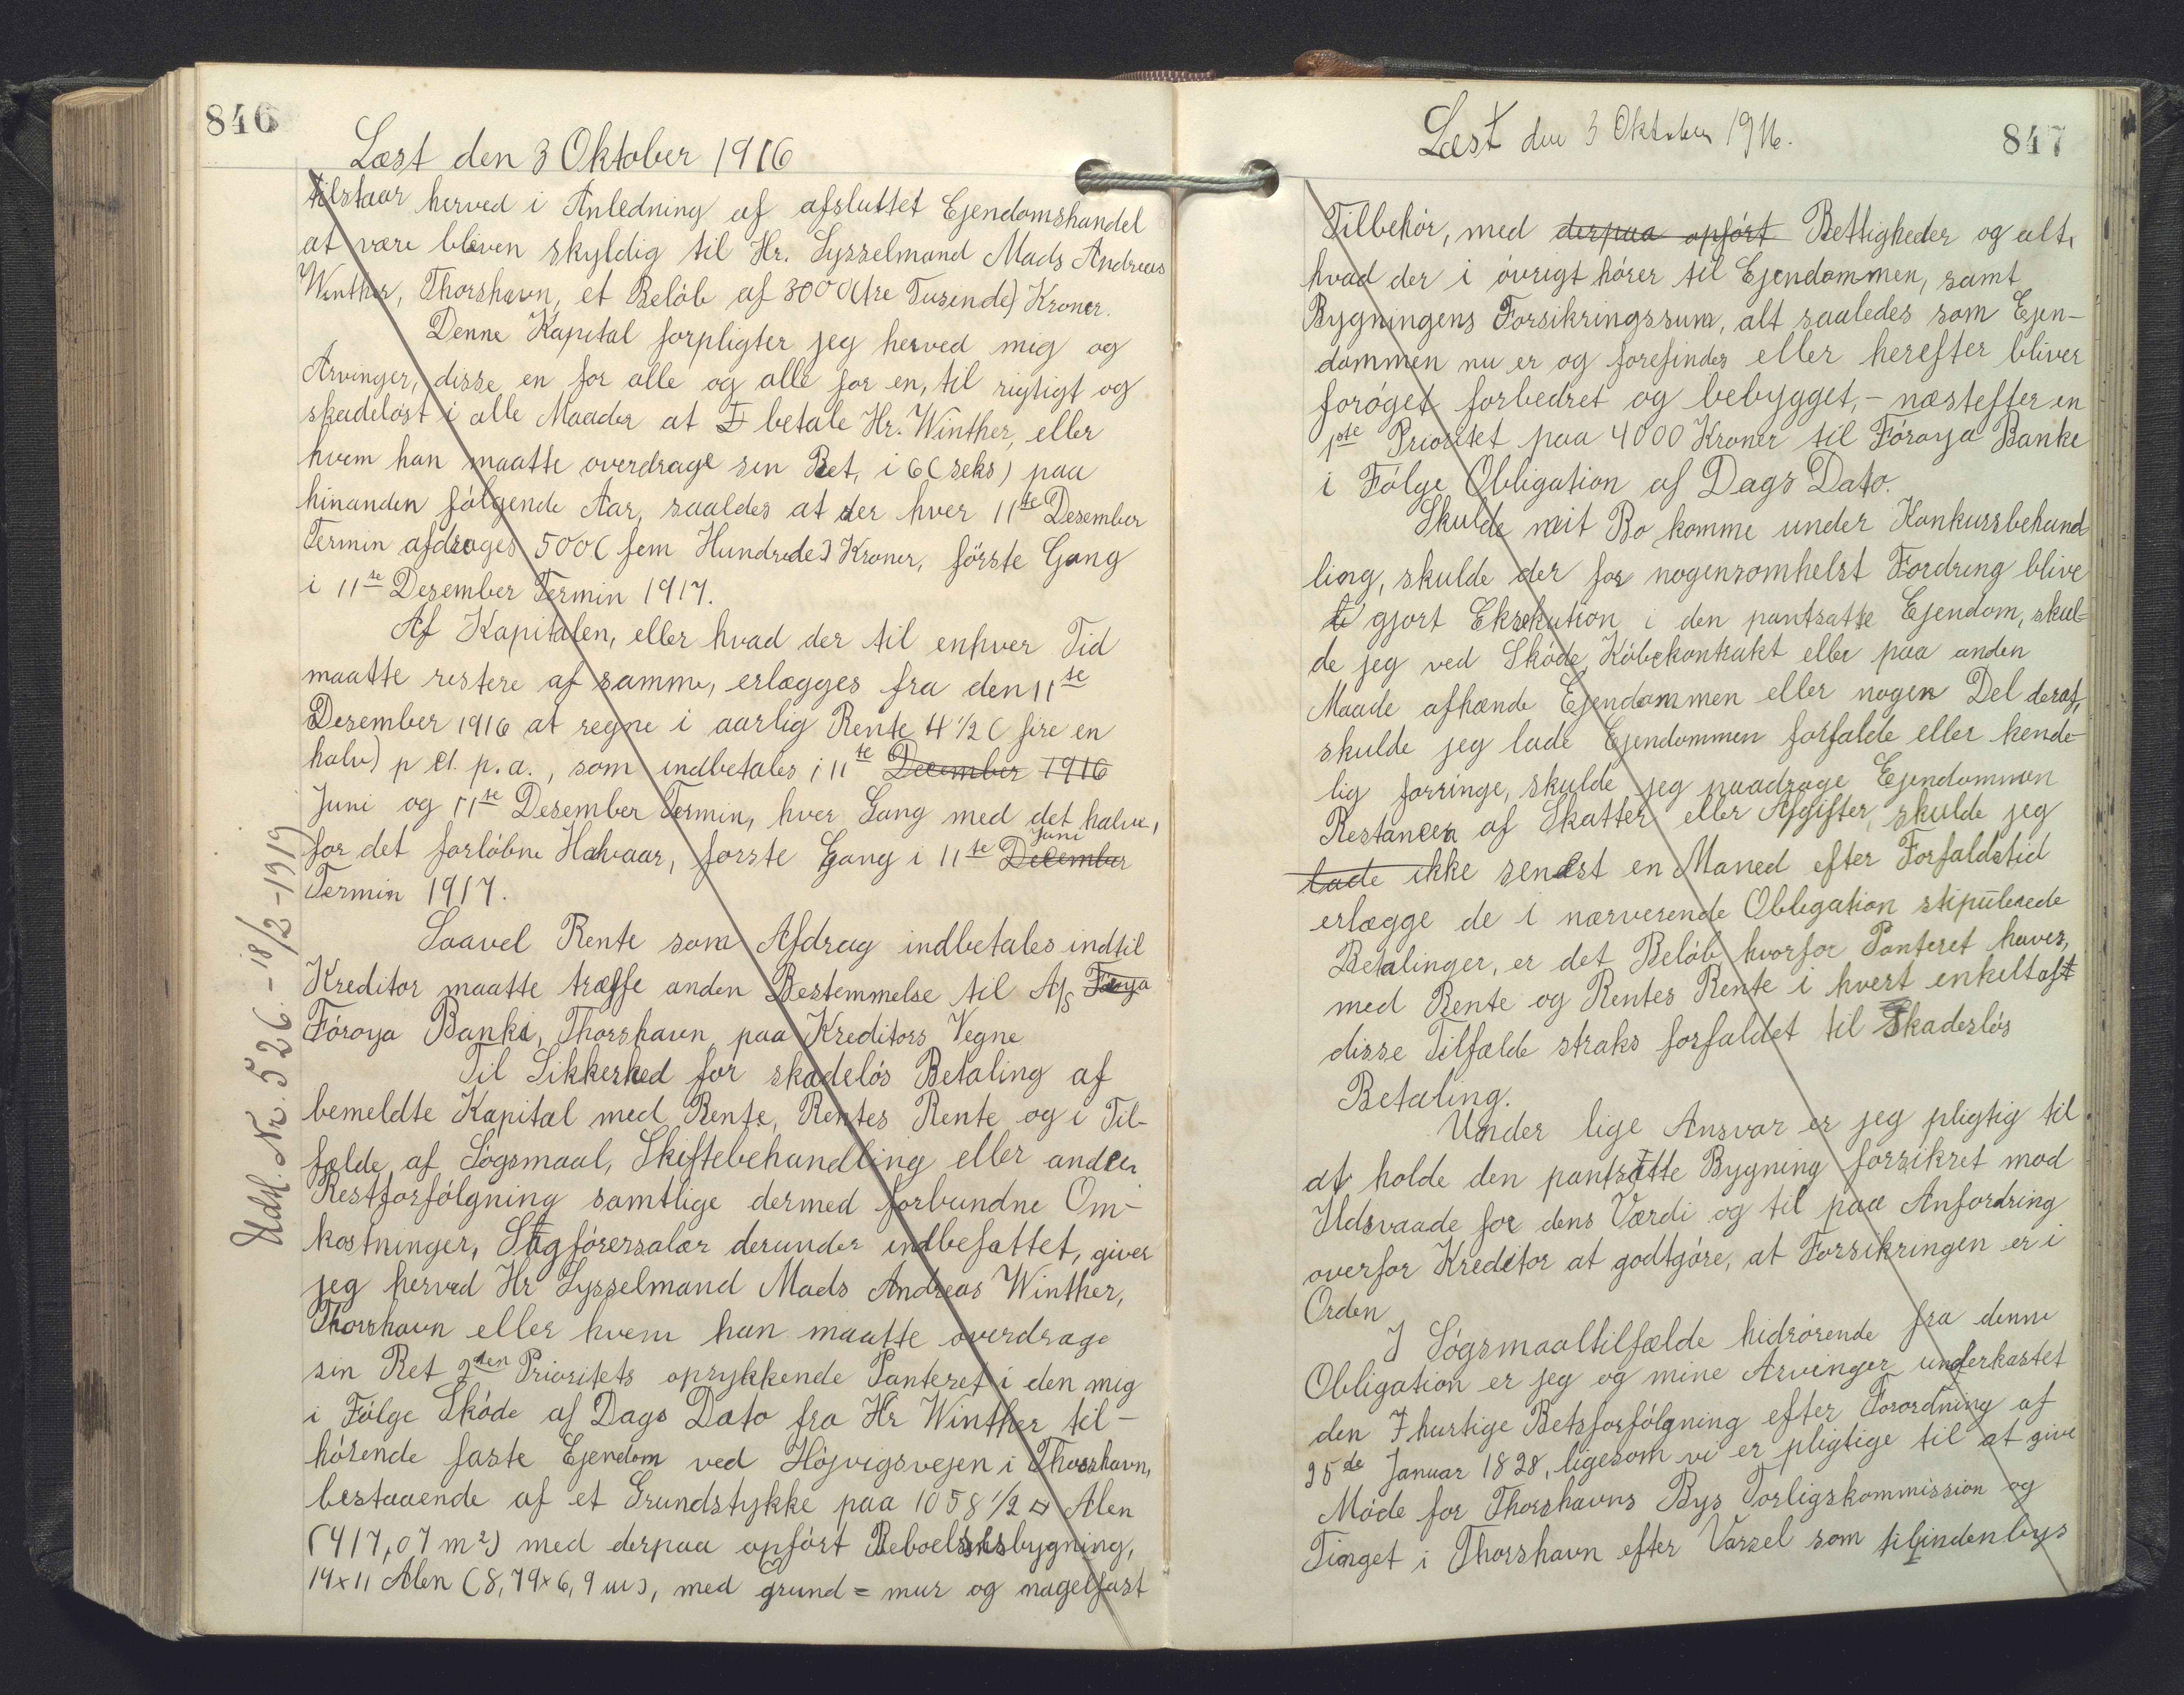 846
Læst den 3 Oktober 1916
tilstaar herved i Anledning af afsluttet Ejendomshandel
at være bleven skyldig til Hr. Sysselmand Mads Andreas
Winther, Thorshavn, et Beløb af 3000 (tre Tusende) Kroner.
Denne Kapital forpligter jeg herved mig og
Arvinger, disse en for alle og alle for en, til rigtigt og
skadeløst i alle Maader at betale Hr. Winther, eller
hvem han maatte overdrage sin Ret, i 6 (seks) paa
hinanden følgende Aar, saaldes at der hver 11te Desember
Termin afdrages 500 (fem Hundrede) Kroner, förste Gang
i 11te Desember Termin 1917.
Af Kapitalen, eller hvad der til enhver Tid
maatte restere af samme, erlægges fra den 11te
Desember 1916 at regne i aarlig Rente 4 1/2 (fire en
halv) p ct. p.a., som indbetales i 11te December 1916
Juni og 11te Desember Termin, hver Gang med det halve,
for det forløbne Halvaar, første Gang i 11te December Juni
Termin 1917.
Saavel Rente som Afdrag indbetales indtil
Kreditor maatte træffe anden Bestemmelse til A/s Førya
Fóroya Banki, Thorshavn paa Kreditors Vegne
Til Sikkerhed for skadeløs Betaling af
bemeldte Kapital med Rente, Rentes Rente og i Til-
fælde af Søgsmaal, Skiftebehandling eller anden
Restforfölgning samtlige dermed forbundne Om-
kostninger, Sagförersalær derunder indbefattet, giver
jeg herved Hr Sysselmand Mads Andreas Winther,
Thorshavn eller hvem han maatte overdrage
sin Ret 2den Prioritets oprykkende Panteret i den mig
i Følge Skøde af Dags Dato fra Hr Winther til-
hörende faste Ejendom ved Højvigsvejen i Thorshavn,
bestaaende af et Grundstykke paa 1058 1/2 □ Alen
(417,07 m²) med derpaa opført Beboelseshusbygning,
14x11 Alen (8,79x6,9 m), med grund = mur og nagelfast
Udsl. Nr. 526. - 18/2 - 1919
847
Læst den 3 Oktober 1916.
Tilbehör, med derpaa opført Rettigheder og alt,
hvad der i øvrigt hører til Ejendommen, samt
Bygningens Forsikringssum, alt saaledes som Ejen-
dommen nu er og forefindes eller herefter bliver
forøget forbedret og bebygget, - næstefter en
1ste Prioritet paa 4000 Kroner til Fóroya Banke
i Følge Obligation af Dags Dato.
Skulde mit Bo komme under Konkursbehand
ling, skulde der for nogensomhelst Fordring blive
gjort Eksekution i den pantsatte Ejendom, skul-
de jeg ved Skøde, Købekontrakt eller paa anden
Maade afhænde Ejendommen eller nogen Del deraf,
skulde jeg lade Ejendommen forfalde eller kende-
lig forringe, skulde jeg paadrage Ejendommen
Restancer af Skatter eller Afgifter, skulde jeg
lade ikke senest en Maned efter Forfaldstid
erlægge de i nærverende Obligation stipulerede
Betalinger, er det Beløb hvorfor Panteret haves,
med Rente og Rentes Rente i hvert enkelt aft
disse Tilfælde straks forfaldet til Skadesløs
Betaling.
Under lige Ansvar er jeg pligtig til
at holde den pantsatte Bygning forsikret mod
Ildsvaade for dens Værdi og til paa Anfordring
overfor Kreditor at godtgöre, at Forsikringen er i
Orden
I Søgsmaaltilfælde hidrørende fra denne
Obligation er jeg og mine Arvinger underkastet
den hurtige Retsforfölgning efter Forordning af
25de Januar 1828, ligesom vi er pligtige til at give
Møde for Thorshavns Bys Forligskommission og
Tinget i Thorshavn efter Varsel som til indenbys